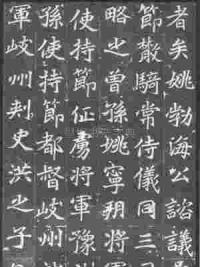 者矣姚勃海公諮議
節散騎常侍儀同三
略之曾孫姚寧朔將
使持節征虜將軍豫
孫使持節都督岐州
軍岐州刾史洪之子